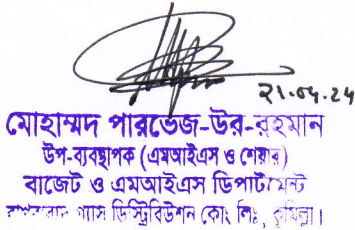 ২১.০৮.২৪
মোহাম্মদ পারভেজ-উর-রহমান
উপ-ব্যবস্থাপক (এমআইএস ও শেয়ার)
বাজেট ও এমআইএস ডিপার্টমেন্ট
বাখরাবাদ গ্যাস ডিস্ট্রিবিউশন কোং লিঃ, কুমিল্লা।